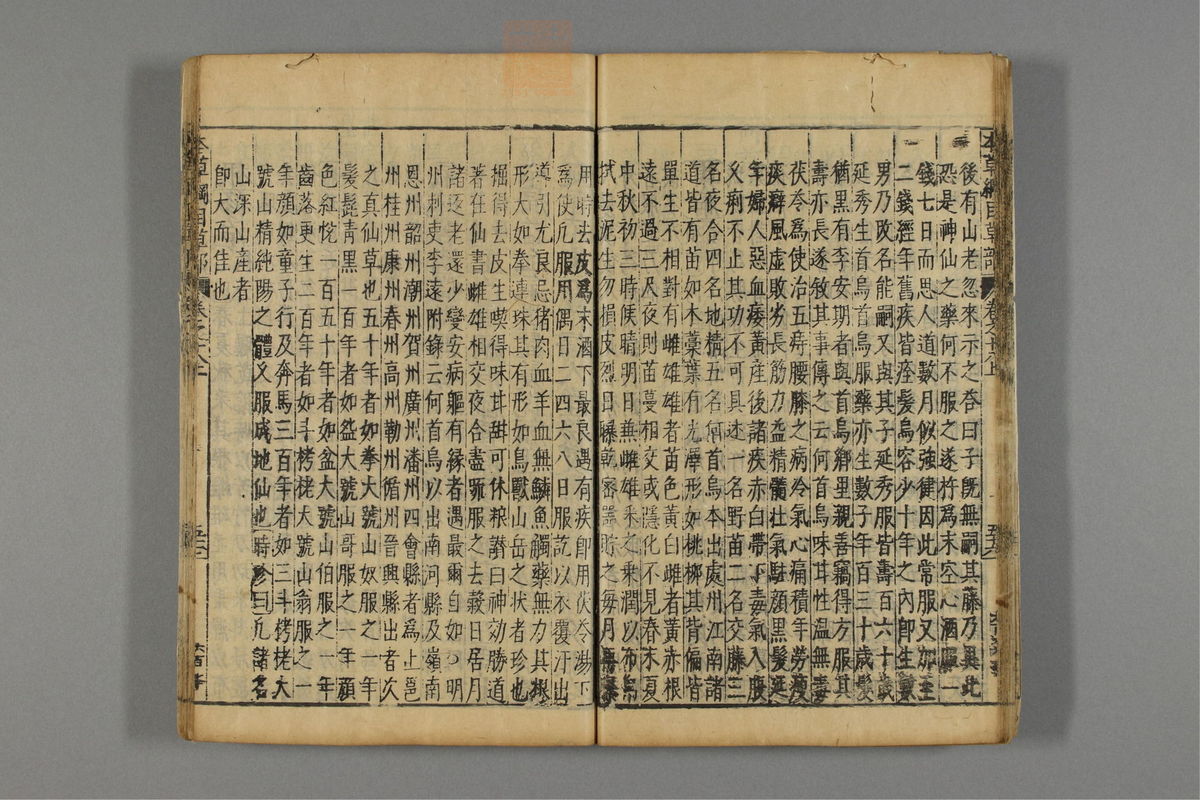 本草綱目草部 卷之十八上
後有山老忽來示之答曰子旣無嗣其藤乃異此
恐是神仙之藥何不服之遂杵爲末空心酒服一
錢七日而思人道數月似強健因此常服又加至
二錢經年舊疾皆痊髮烏容少十年之内卽生數
男乃改名能嗣又與其子延秀服皆壽百六十歲
延秀生首烏首烏服藥亦生數子年百三十歲髮
猶黑有李安期者與首烏鄉里親善竊得方服其
壽亦長遂敘其事傳之云何首烏味甘性温無毒
茯苓爲使治五痔腰膝之病冷氣心痛積年勞瘦
痰癖風虛敗劣長筋力益精髓壯氣駐顔黑髮延
年婦人惡血痿黄產後諸疾赤白帶下毒氣入腹
久痢不止其功不可具述一名野苗二名交藤三
名夜合四名地精五名何首烏本出處州江南諸
道皆有苗如木藁葉有光澤形如桃柳其背偏皆
單生不相對有雌雄雄者苗色黄白雌者黄赤根
遠不過三尺夜則苗蔓相交或隱化不見春末夏
中秋初三時候晴明日兼雌雄采之乘潤以布帛
拭去泥生勿損皮烈日曝乾密器貯之每月再曝
用時去皮爲末酒下最良遇有疾卽用茯苓湯下
爲使凡服用偶日二四六八日服訖以衣覆汗出
導引尤良忌猪肉血羊血無鱗魚觸藥無力其根
形大如拳連珠其有形如鳥獸山岳之狀者珍也
掘得去皮生喫得味甘甜可休粮讚曰神効勝道
著在仙書雌雄相交夜合晝疎服之去穀日居月
諸返老還少變安病軀有縁者遇最爾自如○明
州刺史李遠附錄云何首烏以出南河縣及嶺南
恩州韶州潮州賀州廣州潘州四會縣者爲上邕
州桂州康州春州高州勒州循州晉興縣出者次
之真仙草也五十年者如拳大號山奴服之一年
髮髭青黑一百年者如盌大號山哥服之一年顔
色紅悦一百五十年者如盆大號山伯服之一年
齒落更生二百年者如斗栲栳大號山翁服之一
年顔如童子行及奔馬三百年者如三斗栲栳大
號山精純陽之體久服成地仙也時珍曰凡諸名
山深山產者
卽大而佳也
本草綱目草部 卷之十八上